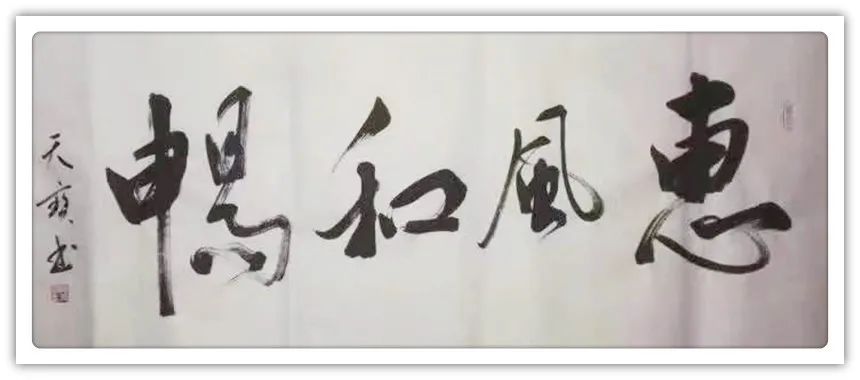 惠風和暢
天寶书